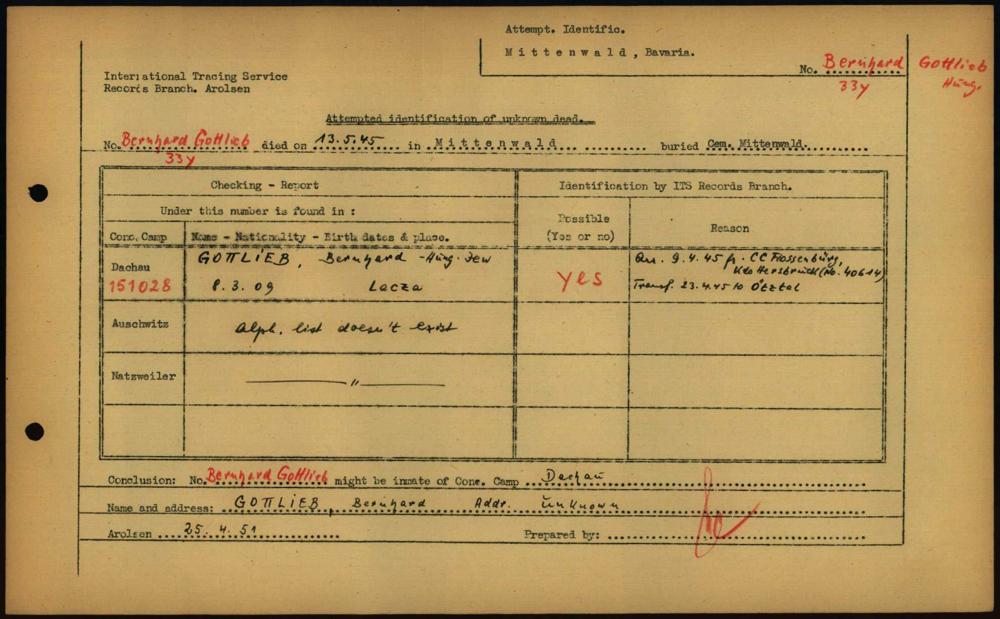 Attempt. Identific.
Mittenwald, Bavaria.
No. Bernhard Gottlieb
33y Hung.
International Tracing Service
Records Branch. Arolsen
Attempted identification of unknown dead.
No. Bernhard Gottlieb died on 13.5.45 in Mittenwald buried Cem. Mittenwald.
33y
Checking - Report
Identification by ITS Records Branch.
Under this number is found in :
Possible
(Yes or no)
Reason
Conc. Camp
Name - Nationality - Birth dates & place.
Dachau
151028
GOTTLIEB, Bernhard - Hung. Jew
8.3.09 Lacza
yes
Arr. 9.4.45 fr. CC Flossenbürg,
Kdo Hersbruck (No. 40614)
Transf. 23.4.45 to Ötztal
Auschwitz
Alph. list doesn't exist
Natzweiler
—— " ——
Conclusion: No. Bernhard Gottlieb might be inmate of Conc. Camp Dachau
Name and address: GOTTLIEB, Bernhard Addr. unknown
Arolsen 25.4.51
Prepared by: